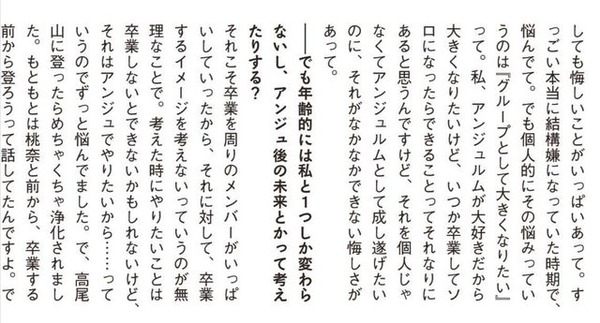 しても悔しいことがいっぱいあって。す
っごい本当に結構嫌になっていた時期で、
悩んでて。でも個人的にその悩みってい
うのは『グループとして大きくなりたい』
って。私、アンジュルムが大好きだから
大きくなりたいけど、いつか卒業してソ
ロになったらできることってそれなりに
あると思うんですけど、それを個人じゃ
なくてアンジュルムとして成し遂げたい
のに、それがなかなかできない悔しさが
あって。
──でも年齢的には私と1つしか変わら
ないし、アンジュ後の未来とかって考え
たりする？
それこそ卒業を周りのメンバーがいっぱ
いしていったから、それに対して、卒業
するイメージを考えないっていうのが無
理なことで。考えた時にやりたいことは
卒業しないとできないかもしれないけど、
それはアンジュでやりたいから……って
いうのでずっと悩んでました。で、高尾
山に登ったらめちゃくちゃ浄化されまし
た。もともとは桃奈と前から、卒業する
前から登ろうって話してたんですよ。で